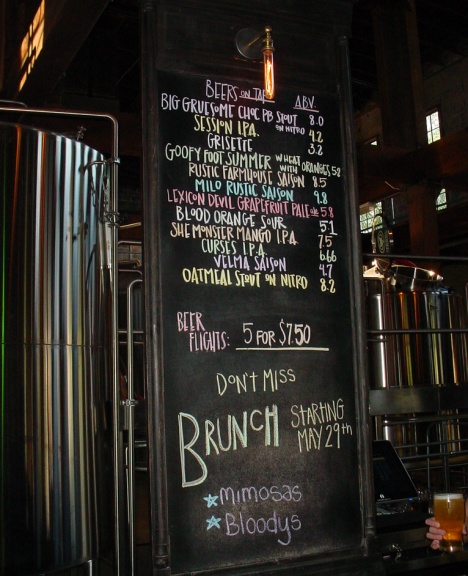 BEERS ON TAP ABV.
BIG GRUESOME CHOC PB STOUT ON NITRO 8.0
SESSION I.P.A. 4.2
GRISETTE 3.2
GOOFY FOOT SUMMER WHEAT WITH ORANGES 5.2
RUSTIC FARMHOUSE SAISON 8.5
MILO RUSTIC SAISON 9.8
LEXICON DEVIL GRAPEFRUIT PALE ale 5.8
BLOOD ORANGE SOUR 5.1
SHE MONSTER MANGO I.P.A. 7.5
CURSES I.P.A. 6.66
VELMA SAISON 4.7
OATMEAL STOUT ON NITRO 8.2
BEER
FLIGHTS: 5 FOR $7.50
DON'T MISS
BRUNCH STARTING
MAY 29th
mimosas
Bloodys